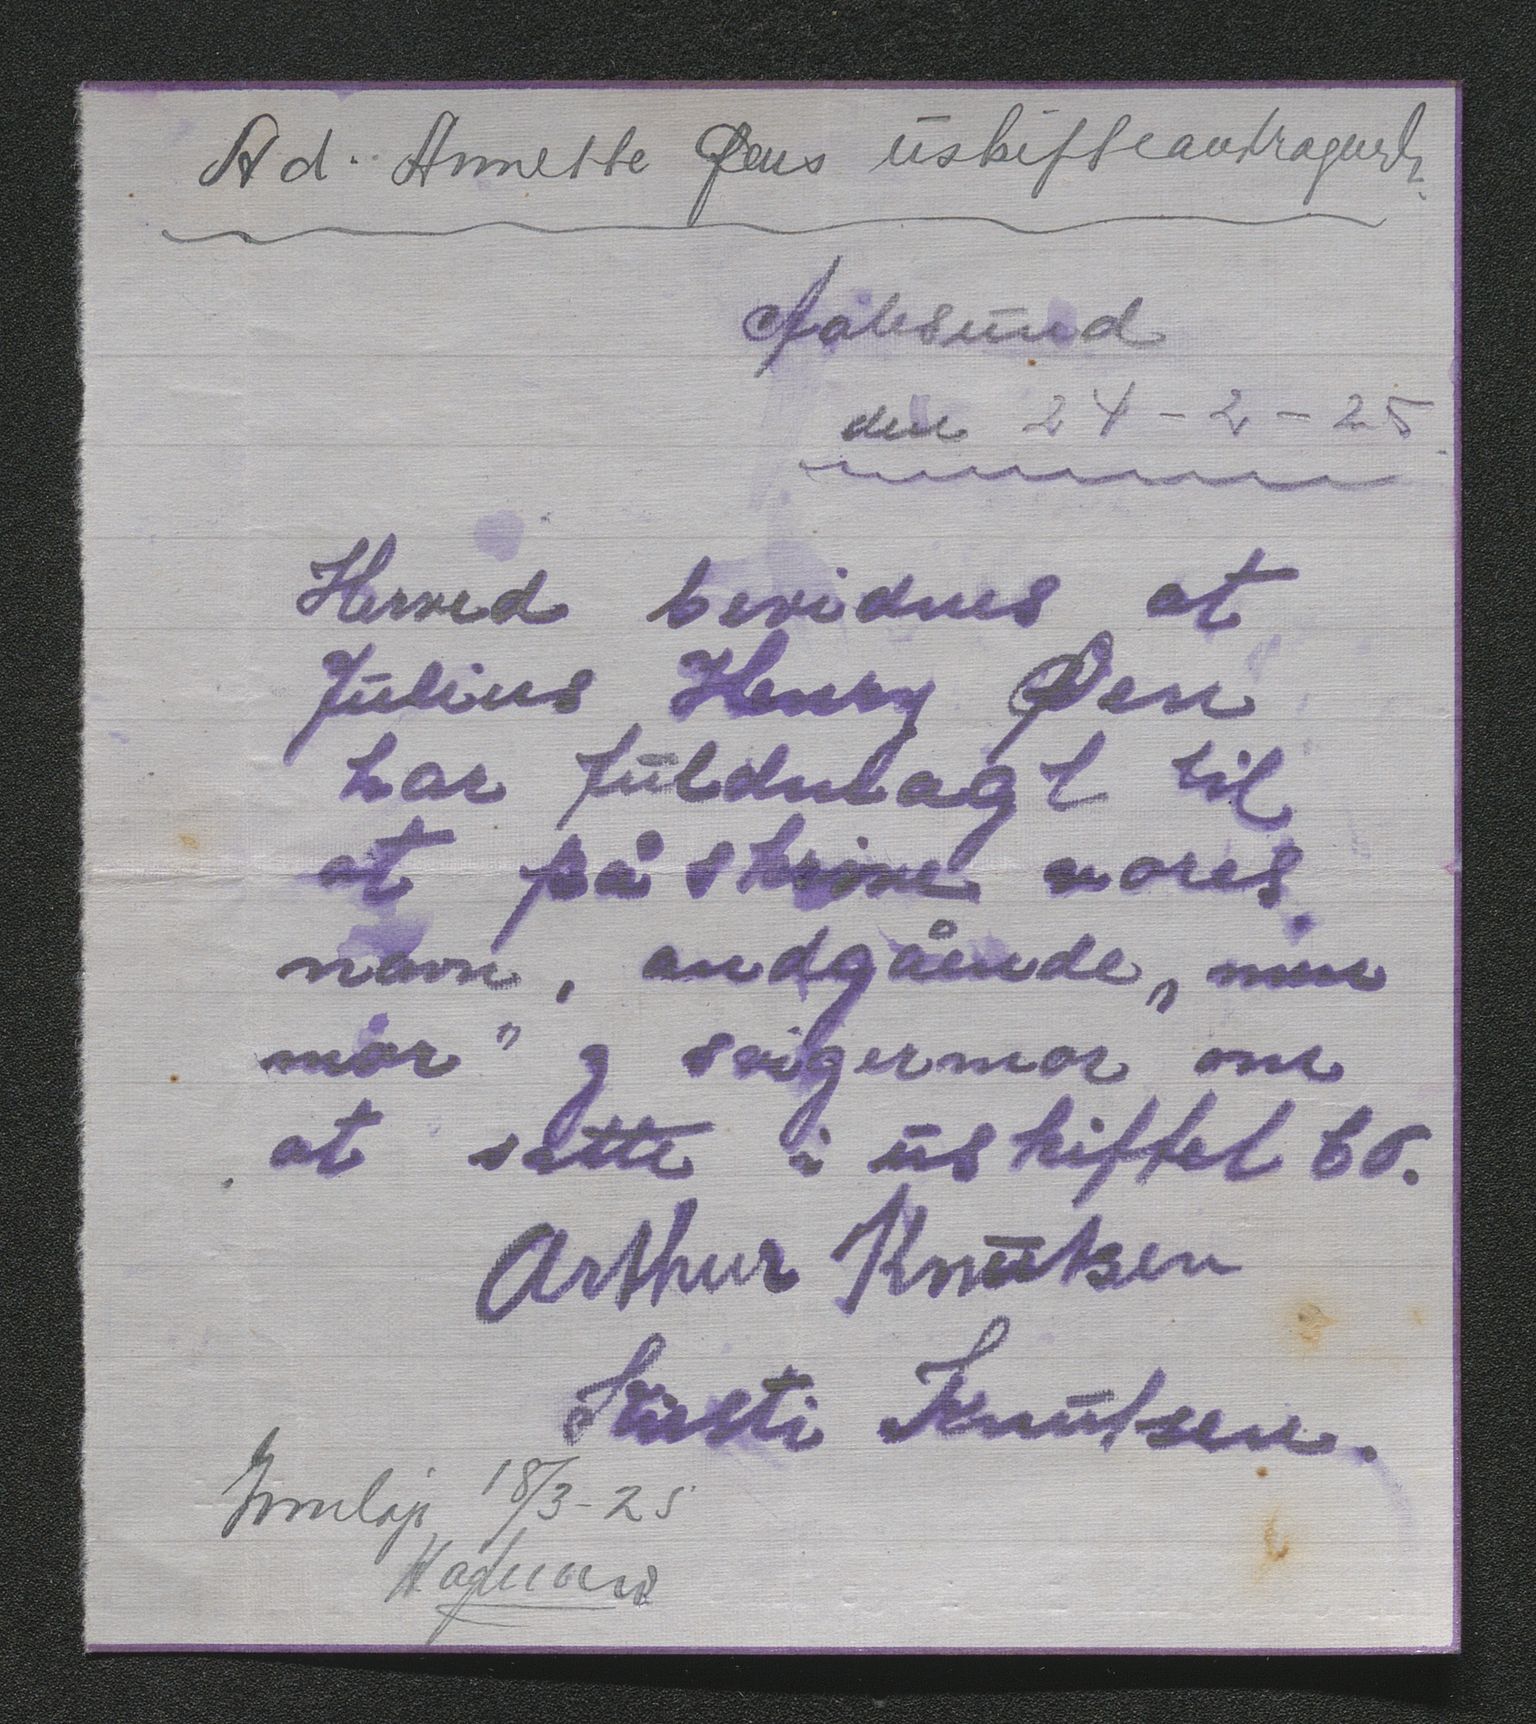 Ad. Annette Øens uskifteandragende
Aalesund
den 24-2-25.
Herved bevidnes at
Julius Henry Øen
har fuldmagt til
at påskrive vores
navn, andgående „min
mor” og svigermor om
at sitte i uskiftet bo.
Arthur Knutsen
Kirsti Knutsen.
18/3-25